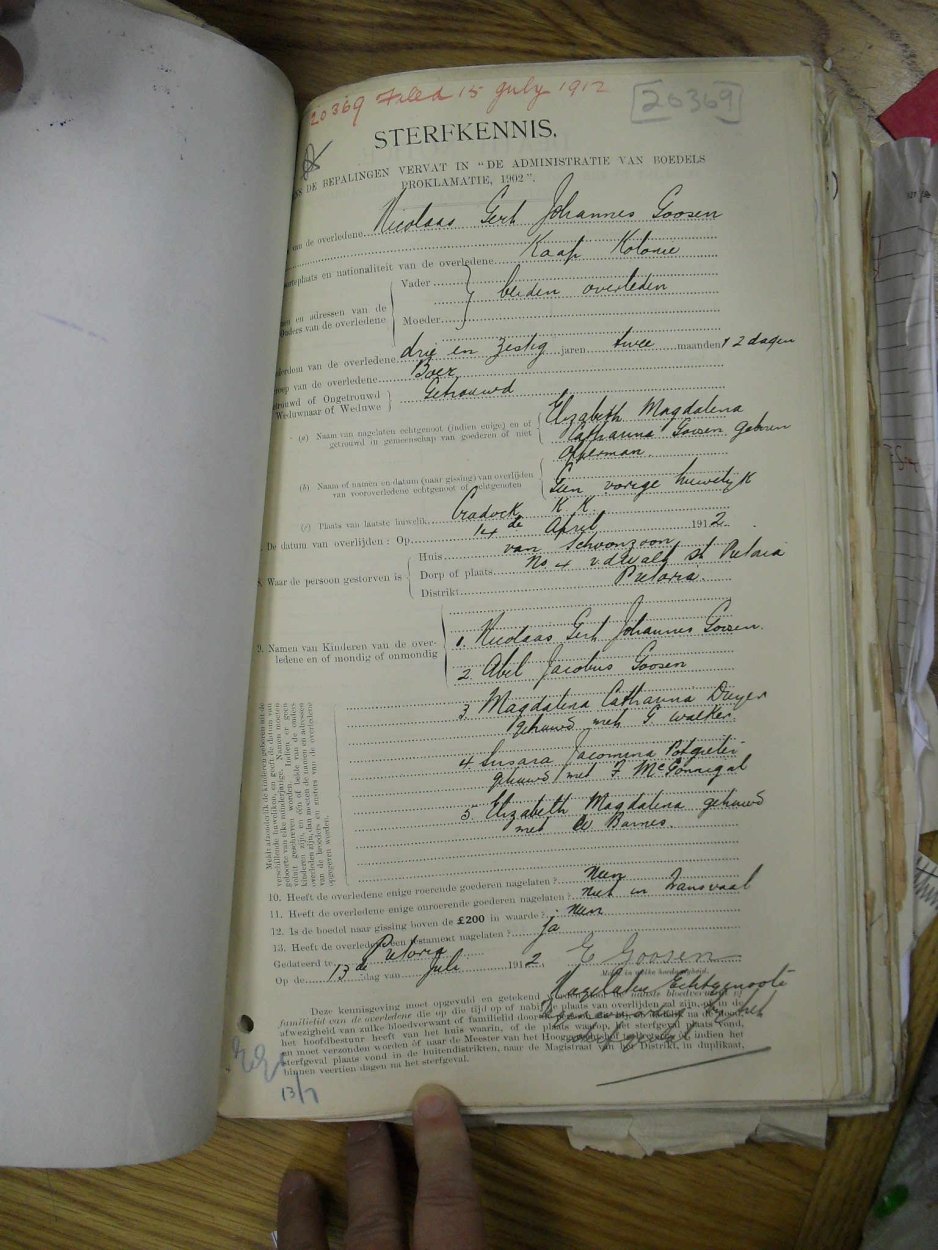 20369 Filed 15 July 1912
20369
STERFKENNIS.
DE BEPALINGEN VERVAT IN "DE ADMINISTRATIE VAN BOEDELS
PROKLAMATIE, 1902".
van de overledene Nicolaas Gert Johannes Goosen
plaats en nationaliteit van de overledene Kaap Kolonie
en adressen van de
Ouders van de overledene
Vader
beiden overleden
Moeder
van de overledene drie en zestig jaren twee maanden + 2 dagen
van de overledene Boer
Getrouwd
trouwd of Ongetrouwd
Weduwnaar of Weduwe
(a) Naam van nagelaten echtgenoot (indien enige) en of
getrouwd in gemeenschap van goederen of niet
Elizabeth Magdalena
Catharina Goosen geboren
Opperman
(b) Naam of namen en datum (naar gissing) van overlijden
van vooroverledene echtgenoot of echtgenoten
Geen vorige huwelijk
(c) Plaats van laatste huwelik Cradock K K
De datum van overlijden: Op 14 de April 1912
8. Waar de persoon gestorven is
Huis van Schoonzoon
Dorp of plaats No 4 v d Walt St Pretoria
Distrikt Pretoria
9. Namen van Kinderen van de over-
ledene en of mondig of onmondig
1. Nicolaas Gert Johannes Goosen
2. Abel Jacobus Goosen
3. Magdalena Catharina Dreyer
gehuwd met G Walker
4. Susara Jacomina Potgieter
gehuwd met F McGonnegal
5. Elizabeth Magdalena gehuwd
met Barnes
10. Heeft de overledene enige roerende goederen nagelaten? Neen
11. Heeft de overledene enige onroerende goederen nagelaten? niet in Transvaal
12. Is de boedel naar gissing boven de £200 in waarde? neen
13. Heeft de overledene een testament nagelaten? ja
Gedateerd te Pretoria
Op de 13 de dag van Juli 1912
E Goosen
Nagelaten Echtgenoote
Deze kennisgeving moet opgevuld en getekend
familielid van de overledene die op die tijd op of nabij de plaats van overlijden zal zijn,
afwezigheid van zulke bloedverwant of familielid door
het hoofdbestuur heeft van het huis waarin, of de plaats waarop, het sterfgeval plaats vond,
en moet verzonden worden òf naar de Meester van het Hooggerechtshof indien het
sterfgeval plaats vond in de buitendistrikten, naar de Magistraat van het Distrikt, in duplikaat,
binnen veertien dagen na het sterfgeval.
13/7